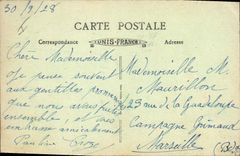 30/9/28
CARTE POSTALE
Correspondance UNIS-FRANCE Adresse
Chère Mademoiselle
Je pense souvent
aux gentilles promenades
que nous avons faites
ensemble, et vous
embrasse amicalement
Mademoiselle M
Maurillon
23 rue de la Guadeloupe
Campagne
Marseille